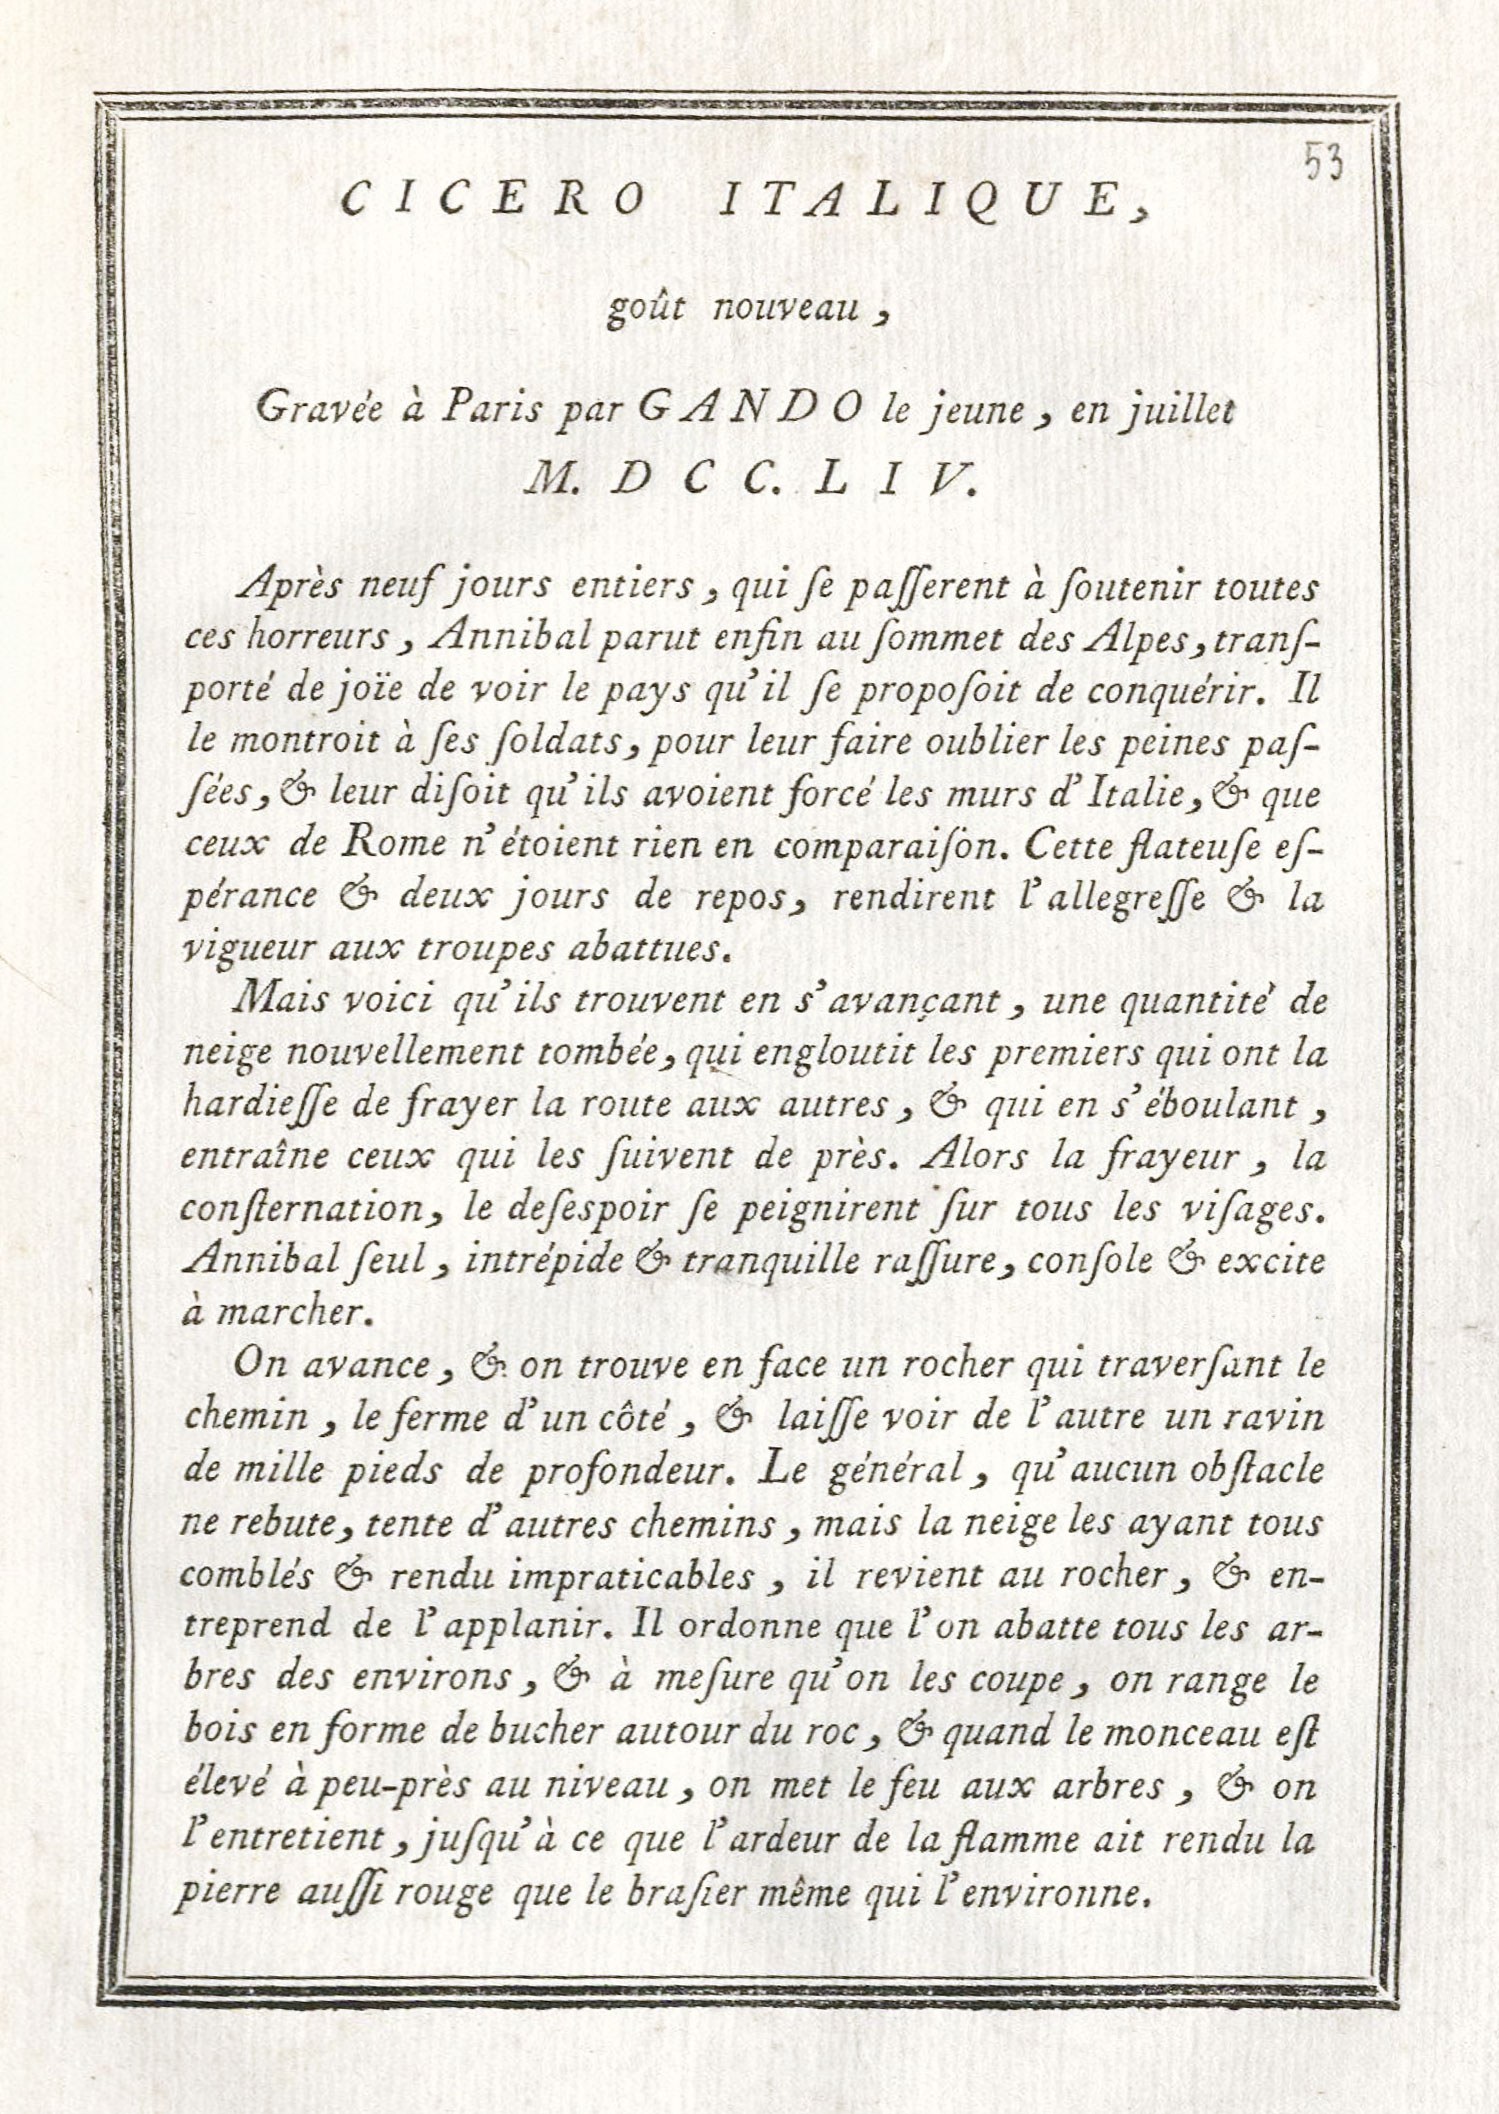 53
CICERO ITALIQUE,
goût nouveau,
Gravée à Paris par GANDO le jeune, en juillet
M. DCC. LIV.
Après neuf jours entiers, qui ſe paſſerent à ſoutenir toutes
ces horreurs, Annibal parut enfin au ſommet des Alpes, tranſ-
porté de joïe de voir le pays qu'il ſe propoſoit de conquérir. Il
le montroit à ſes ſoldats, pour leur faire oublier les peines paſ-
ſées, & leur diſoit qu'ils avoient forcé les murs d'Italie, & que
ceux de Rome n'étoient rien en comparaiſon. Cette flateuſe eſ-
pérance & deux jours de repos, rendirent l'allegreſſe & la
vigueur aux troupes abattues.
Mais voici qu'ils trouvent en s'avançant, une quantité de
neige nouvellement tombée, qui engloutit les premiers qui ont la
hardieſſe de frayer la route aux autres, & qui en s'éboulant,
entraîne ceux qui les ſuivent de près. Alors la frayeur, la
conſternation, le deſespoir ſe peignirent ſur tous les viſages.
Annibal ſeul, intrépide & tranquille raſſure, conſole & excite
à marcher.
On avance, & on trouve en face un rocher qui traverſant le
chemin, le ferme d'un côté, & laiſſe voir de l'autre un ravin
de mille pieds de profondeur. Le général, qu'aucun obſtacle
ne rebute, tente d'autres chemins, mais la neige les ayant tous
comblés & rendu impraticables, il revient au rocher, & en-
treprend de l'applanir. Il ordonne que l'on abatte tous les ar-
bres des environs, & à meſure qu'on les coupe, on range le
bois en forme de bucher autour du roc, & quand le monceau eſt
élevé à peu-près au niveau, on met le feu aux arbres, & on
l'entretient, juſqu'à ce que l'ardeur de la flamme ait rendu la
pierre auſſi rouge que le braſier même qui l'environne.